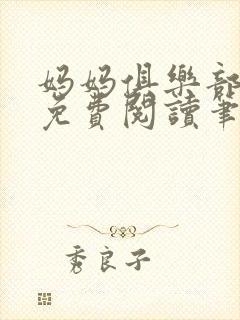 妈妈俱樂部
免費閱讀筆
秀良子